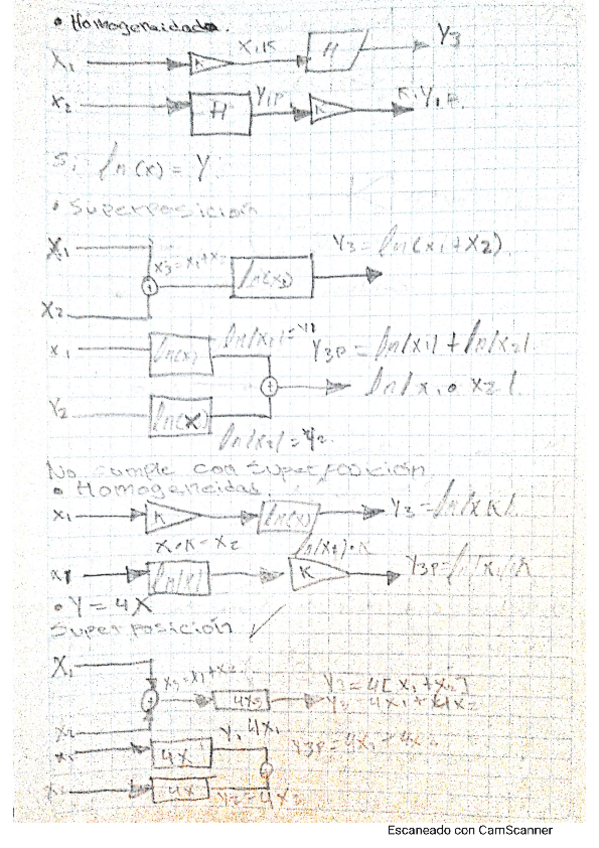 • Homogeneidad.
X₁ K X₁K H Y₃
X₂ H Y₁P K K·Y₁P.
Si ln(x) = Y
• Superposición
X₁
X₃=X₁+X₂ ln(x₃) Y₃=ln(x₁+x₂)
X₂
x₁ ln(x₁ ln|x₁|=y₁ Y₃P=ln|x₁|+ln|x₂|
+ ln|x₁∘x₂|
Y₂ ln(x) ln|x₂|=y₂.
No cumple con superposición
• Homogeneidad.
x₁ K ln(x) Y₃=ln|xK|
X•K=X₂ ln(x₂)·K
x₁ ln|x| K Y₃P=ln|x|K
• Y=4X
Superposición
X₁
X₃=X₁+X₂ 4X₃ Y₃=4[X₁+X₂]
Y₃=4X₁+4X₂
X₂
X₁ 4X Y₁ 4X₁ Y₃P=4X₁+4X₂
X₂ 4X Y₂=4X₂
Escaneado con CamScanner